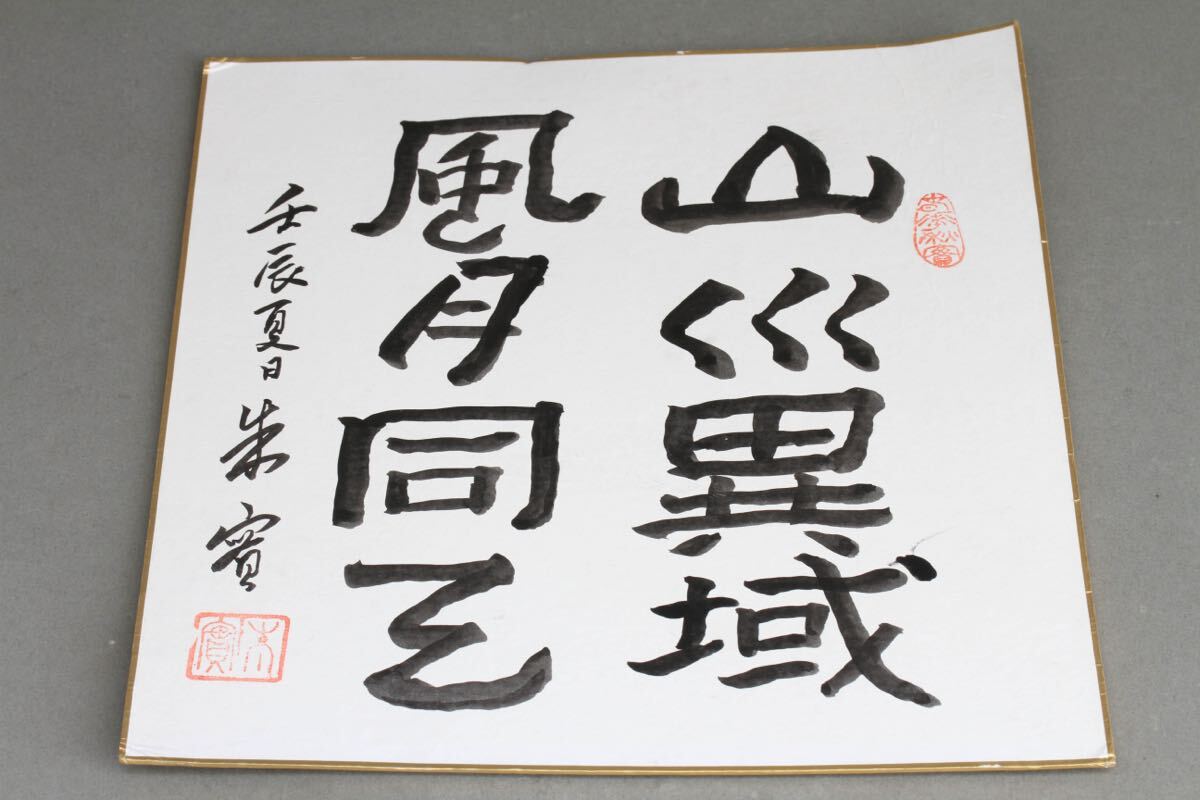 山巛異域
風月同天
壬辰夏日朱實
朱實